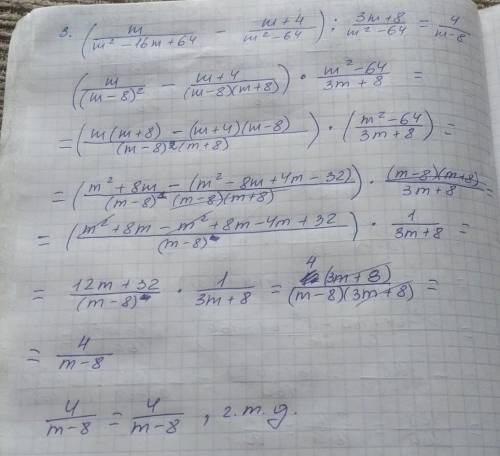 3. (m/(m²-16m+64) - (m+4)/(m²-64)) : (3m+8)/(m²-64) = 4/(m-8)
(m/(m-8)² - (m+4)/((m-8)(m+8))) · (m²-64)/(3m+8) =
= ((m(m+8) - (m+4)(m-8))/((m-8)²(m+8))) · ((m²-64)/(3m+8)) =
= ((m²+8m - (m²-8m+4m-32))/((m-8)²(m-8)(m+8))) · ((m-8)(m+8))/(3m+8) =
= ((m²+8m-m²+8m-4m+32)/(m-8)) · 1/(3m+8) =
= (12m+32)/(m-8) · 1/(3m+8) = (4(3m+8))/((m-8)(3m+8)) =
= 4/(m-8)
4/(m-8) = 4/(m-8), г.т.д.